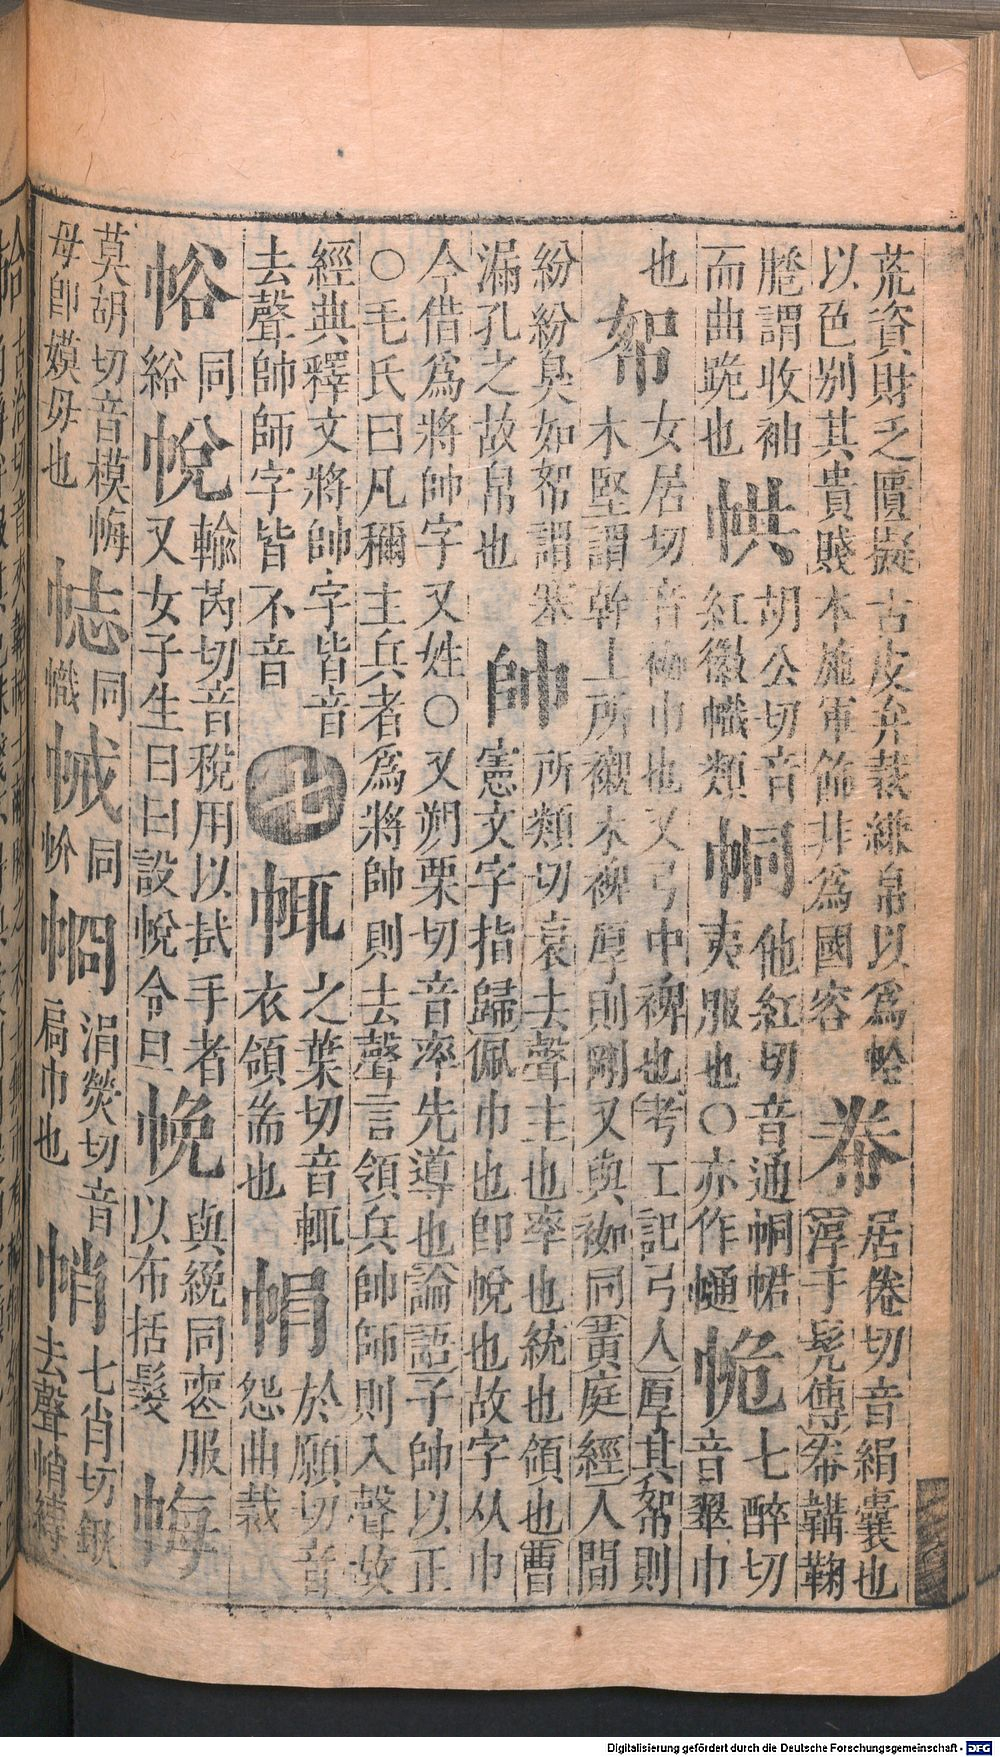 荒資財乏匱擬古皮弁裁縑帛以爲㡊
以色别其貴賤本施軍飾非爲國容
帣
居倦切音絹囊也
淳于髠傳帣韝鞠
䠆謂收袖
而曲跪也
㡃
胡公切音
紅徽幟類
㡈
他紅切音通㡈帬
夷服也○亦作㡏
㡎
七醉切
音翠巾
也
帤
女居切音袽巾也又弓中裨也考工記弓人厚其帤則
木堅謂幹上所襯木裨厚則剛又與袽同黄庭經人間
紛紛臭如帤謂塞
漏孔之故帛也
帥
所類切衰去聲主也率也統也領也曹
憲文字指歸佩巾也卽帨也故字从巾
今借爲將帥字又姓○又朔栗切音率先導也論語子帥以正
○毛氏曰凡稱主兵者爲將帥則去聲言領兵帥師則入聲故
經典釋文將帥字皆音
去聲帥師字皆不音
七
㡇
之葉切音輒
衣領耑也
帤
於願切音
怨曲裁
㡉
同
綌
帨
輸芮切音稅用以拭手者
又女子生日曰設帨令旦
㡈
與絻同䘮服
以布括髮
㡋
莫胡切音模㡋
母卽嫫母也
㡌
同
幟
㡜
同
㡙
涓熒切音
扃巾也
帩
七肖切鍬
去聲帩縛
Digitalisierung gefördert durch die Deutsche Forschungsgemeinschaft - DFG